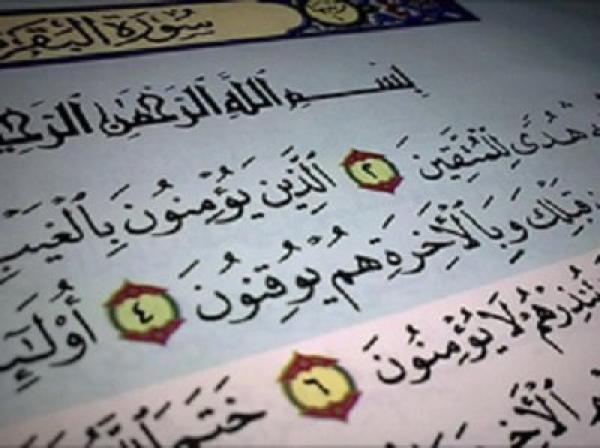 سُورَةُ الْبَقَرَ
بِسْمِ اللَّهِ الرَّحْمَٰنِ الرَّحِيـ
هُدًى لِّلْمُتَّقِينَ ٢ الَّذِينَ يُؤْمِنُونَ بِالْغَيْبِ
قَبْلِكَ وَبِالْآخِرَةِ هُمْ يُوقِنُونَ ٤ أُولَٰئِـ
تُنذِرْهُمْ لَا يُؤْمِنُونَ ٦ خَتَمَ اللَّهُ